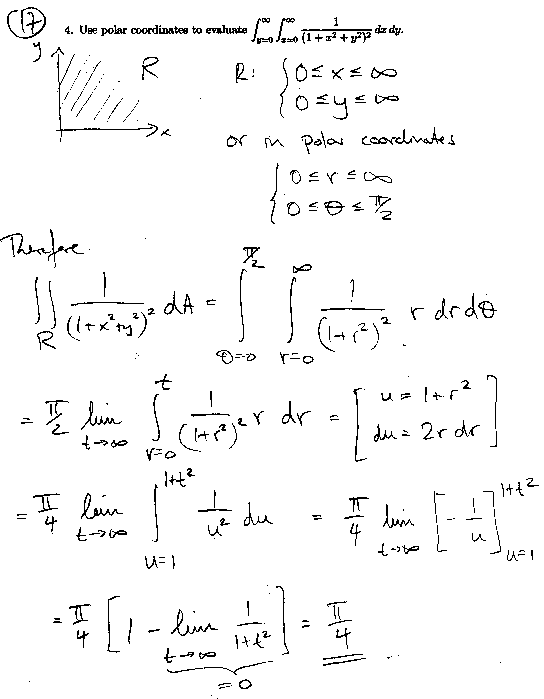 (17)
4. Use polar coordinates to evaluate ∫_{y=0}^{∞} ∫_{x=0}^{∞} 1/(1 + x² + y²)² dx dy.
y R x
R: { 0 ≤ x ≤ ∞
0 ≤ y ≤ ∞
or in polar coordinates
{ 0 ≤ r ≤ ∞
0 ≤ θ ≤ π/2
Therefore
∬_R 1/(1+x²+y²)² dA = ∫_{θ=0}^{π/2} ∫_{r=0}^{∞} 1/(1+r²)² r dr dθ
= π/2 lim_{t→∞} ∫_{r=0}^{t} 1/(1+r²)² r dr = [ u = 1+r² du = 2r dr ]
= π/4 lim_{t→∞} ∫_{u=1}^{1+t²} 1/u² du = π/4 lim_{t→∞} [ - 1/u ]_{u=1}^{1+t²}
= π/4 [ 1 - lim_{t→∞} 1/(1+t²) ] = π/4
= 0